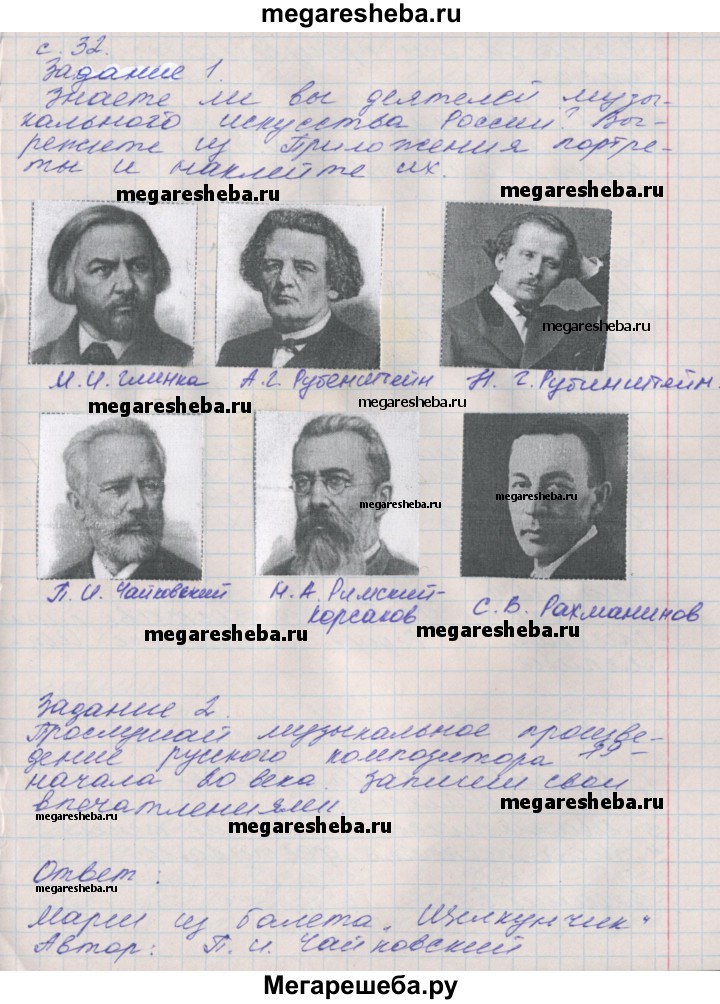 megaresheba.ru
с. 32.
Задание 1.
Знаете ли вы деятелей музы-
кального искусства России? Вы-
режете из Приложения портре-
ты и наклейте их.
megaresheba.ru
megaresheba.ru
megaresheba.ru
М. И. Глинка
А. Г. Рубенштейн
Н. Г. Рубинштейн.
megaresheba.ru
megaresheba.ru
megaresheba.ru
megaresheba.ru
П. И. Чайковский
Н. А. Римский-
Корсаков
С. В. Рахманинов
megaresheba.ru
megaresheba.ru
Задание 2.
Прослушай музыкальное произве-
дение русского композитора 19-
начала 20 века. Запиши свои
впечатлениями
megaresheba.ru
megaresheba.ru
megaresheba.ru
Ответ:
megaresheba.ru
Марш из балета „Щелкунчик"
Автор: П. И. Чайковский
Мегарешеба.ру